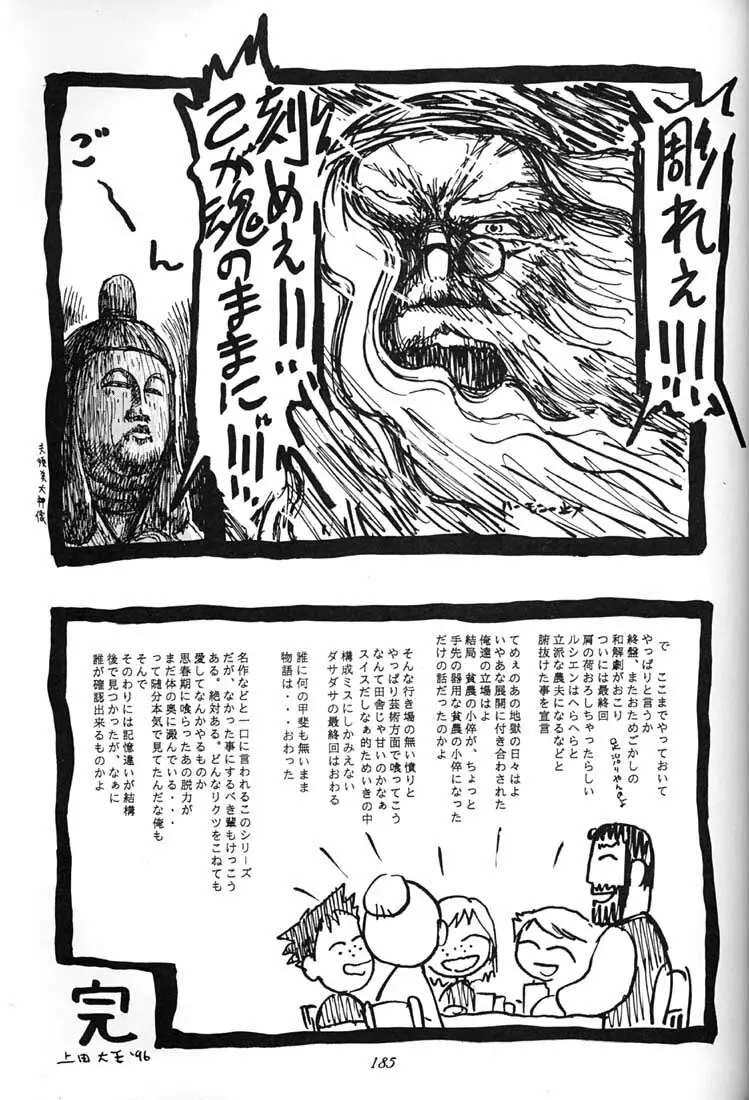 彫れぇ!!!
刻めぇ!!
己が魂のままに!!!
ごーん
で ここまでやっておいて
やっぱりと言うか
終盤、またおためごかしの
和解劇がおこり
ついには最終回
肩の荷おろしちゃったらしい
ルシエンはへらへらと
立派な農夫になるなどと
腑抜けた事を宣言
てめぇのあの地獄の日々はよ
いやあな展開に付き合わされた
俺達の立場はよ
結局 貧農の小倅が、ちょっと
手先の器用な貧農の小倅になった
だけの話だったのかよ
そんな行き場の無い憤りと
やっぱり芸術方面で喰ってこう
なんて田舎じゃ甘いのかなぁ
スイスだしなぁ的ためいきの中
構成ミスにしかみえない
ダサダサの最終回はおわる
誰に何の甲斐も無いまま
物語は・・・おわった
名作などと一口に言われるこのシリーズ
だが、なかった事にするべき輩もけっこう
ある。絶対ある。どんなリクツをこねても
愛してなんかやるものか
思春期に喰らったあの脱力が
まだ体の奥に澱んでいる・・・
って随分本気で見てたんだな俺も
そんで
そのわりには記憶違いが結構
後で見つかったが、なぁに
誰が確認出来るものかよ
完
上田 大王 '96
185